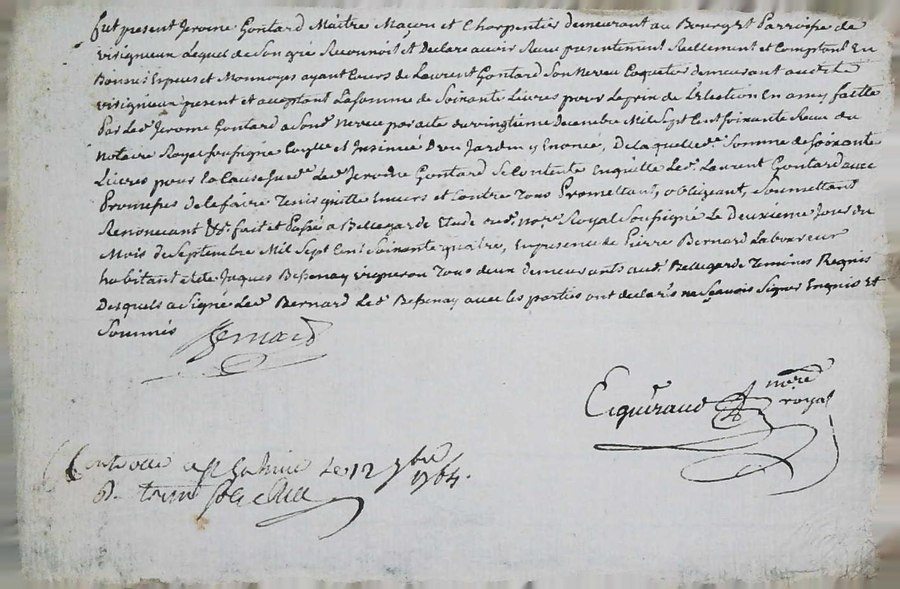 fut present Jerome Gontard Maitre Maçon et Charpentier demeurant au Bourg et Parroisse de
visignieux Lequel de Son gré Reconnoit et Declare avoir Recu presentement Reellement et Comptant En
Bonnes Especes et Monnoyes ayant Cours de Laurent Gontard Son Neveu Coquetier demeurant audit
visignieux present et acceptant La Somme de Soixante Livres pour Le prix de L'Election En amy faitte
Par Led. Jerome Gontard a Sond. Neveu par acte du vingtieme Decembre Mil Sept Cent Soixante Recu du
Notaire Royal Soussigné et Insinué D'un Jardin y Enoncé, De laquelle d. Somme de Soixante
Livres pour la Cause Led. Jerome Gontard Se Contente En quitte Led. Laurent Gontard avec
Promesses de le faire Tenir quitte Envers et Contre Tous Promettant, obligeant, Soumettant
Renoncant &c. fait et Passé a Bellegarde Etude dud. nore. Royal Soussigné Le Deuxieme Jour du
Mois de Septembre Mil Sept Cent Soixante quatre, En presence de Pierre Bernard Laboureur
habitant et de Jaques Bessenay vigneron Tous deux demeurants aud. Bellegarde Temoins Requis
Desquels a Signé Led. Bernard Led. Bessenay avec les parties ont declarés ne Scavoir Signer Enquis Et
Sommés
Bernard
Eiguiraud nore royal
Controllé a Le 12 7bre 1764.